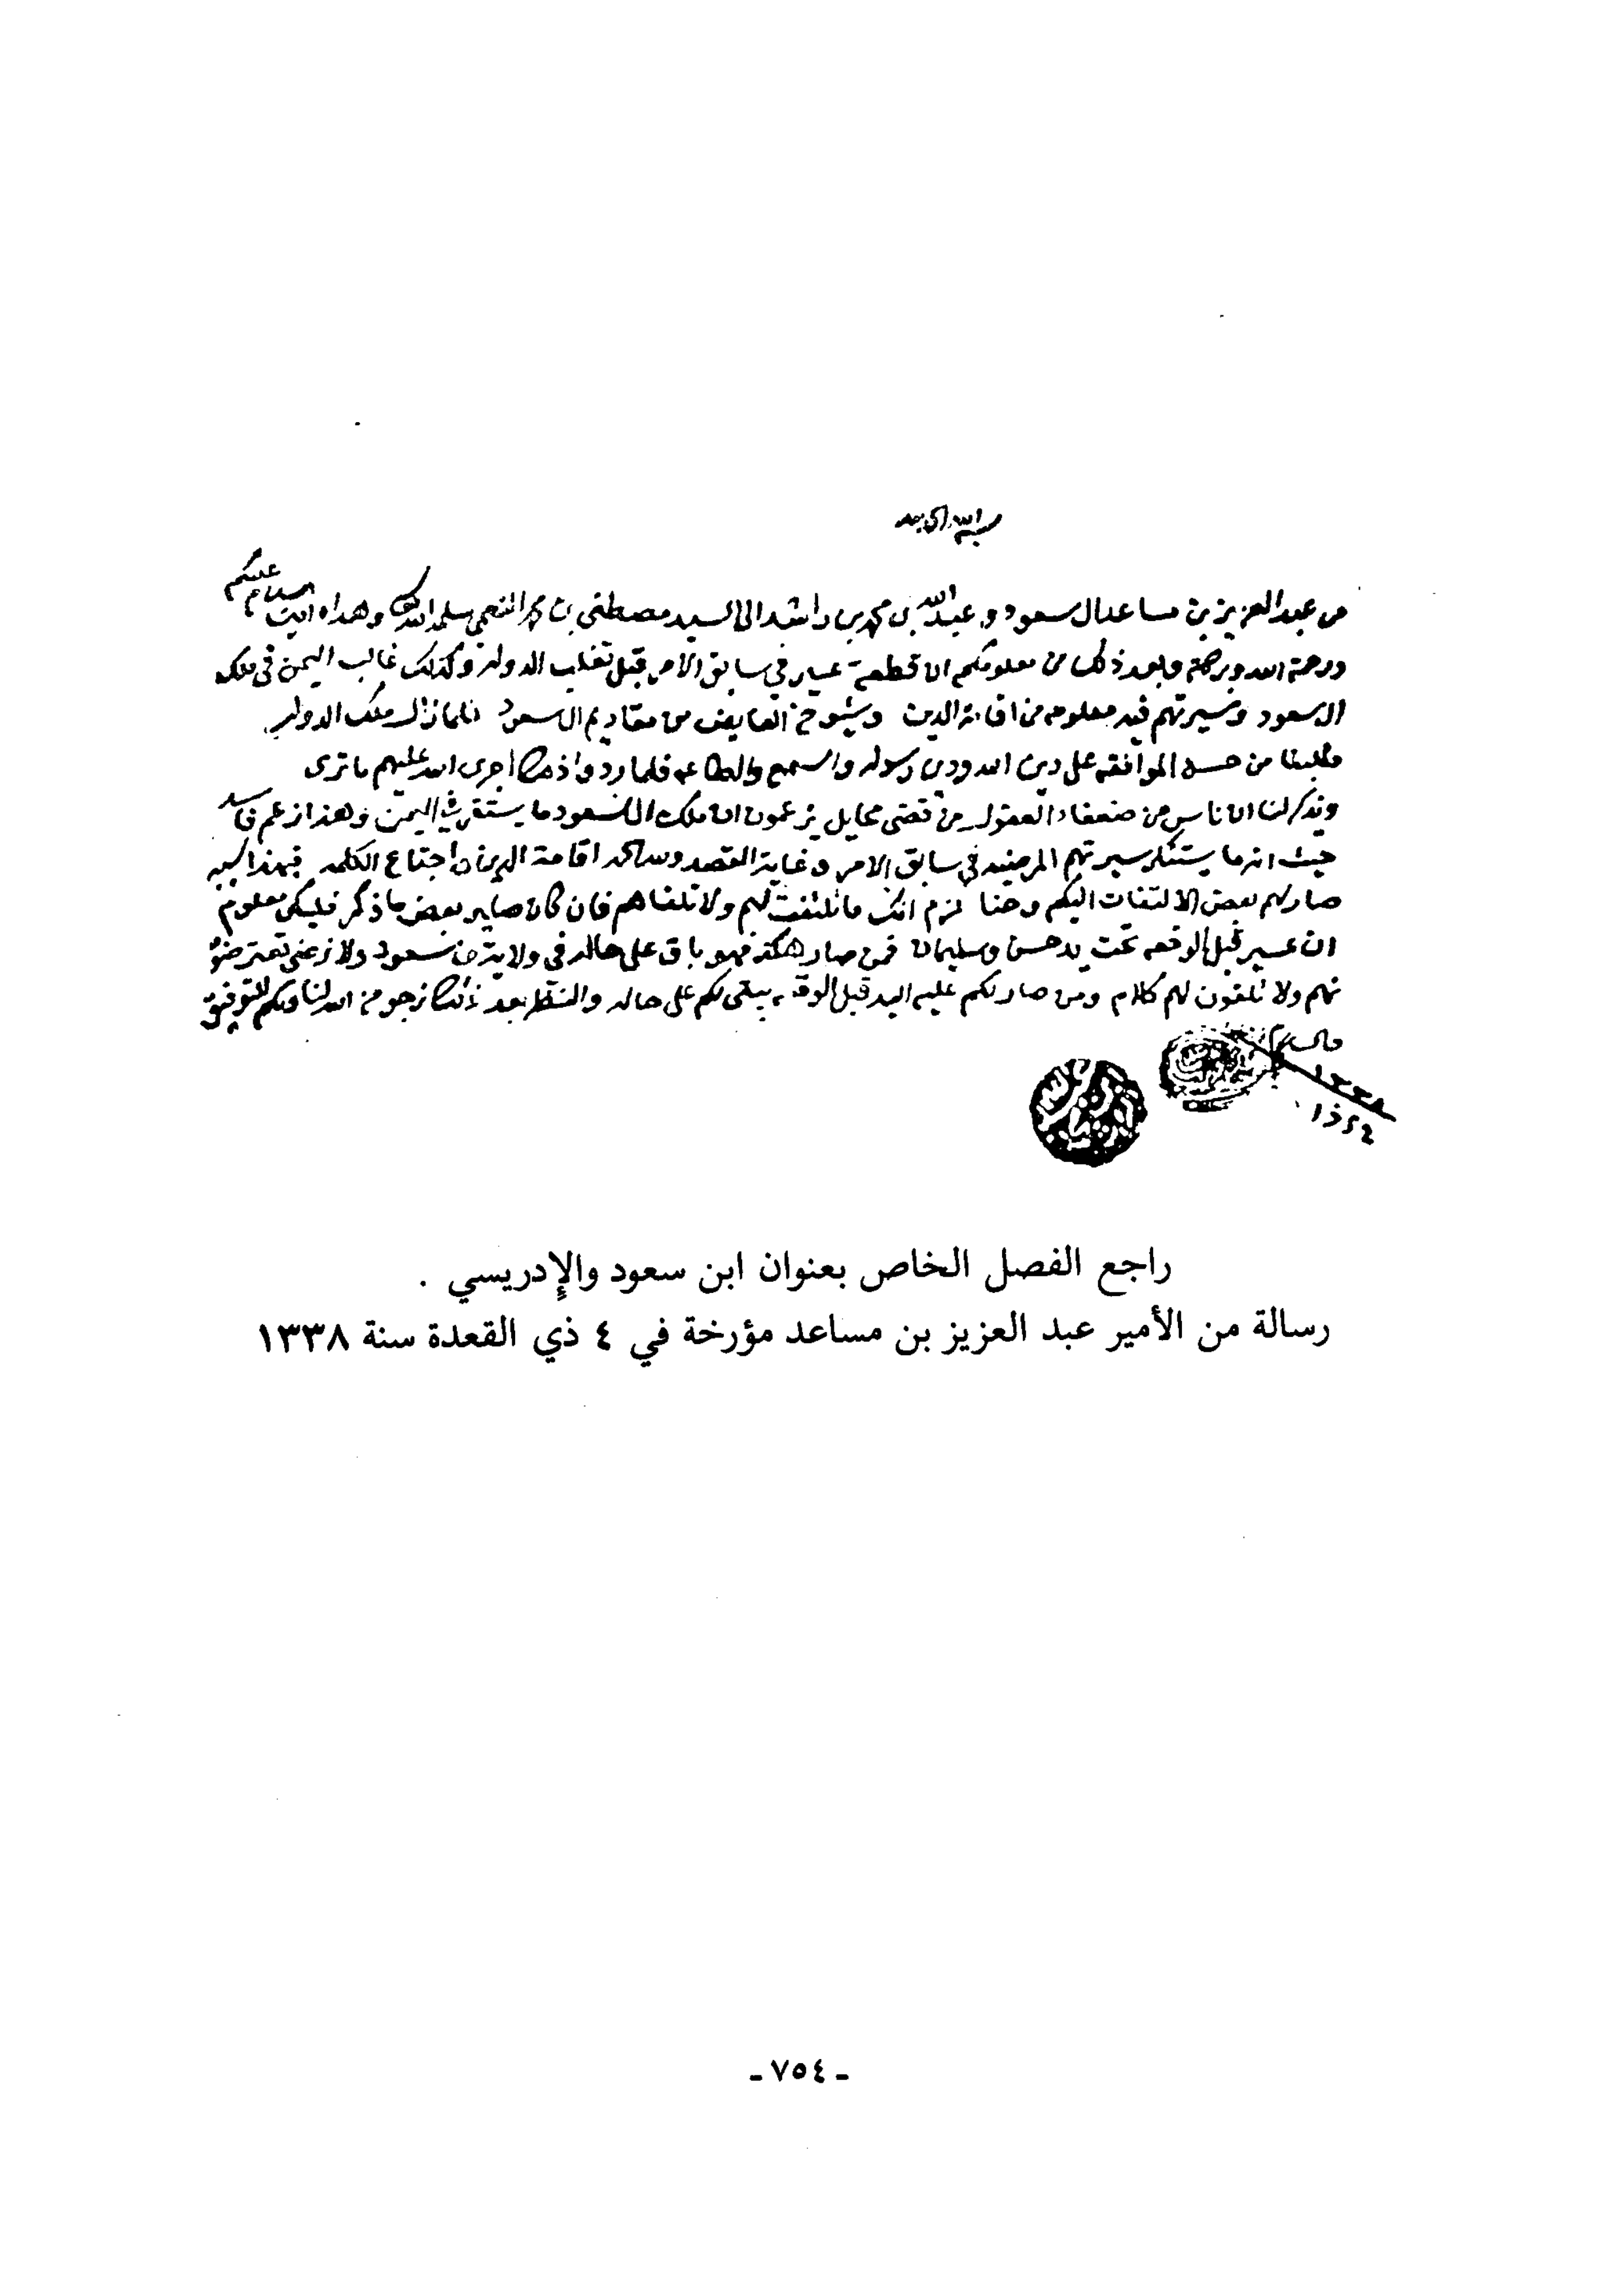 بسم الله الرحمن
من عبد العزيز بن مساعد ال سعود و عبد الله بن محمد بن راشد الى السيد مصطفى بن محمد النعمي سلمه الله وهداه امين السلام عليكم
ورحمة الله وبركاته وبعد ذلك من معلومكم ان قطعة عسير في سابق الامر قبل تغلب الدوله وكذلك غالب اليمن في ملك
ال سعود وسيرتهم فيه معلومه من اقامة الدين وشيوخ العايض من مقاديم ال سعود فلما زال ملك الدوله
طلبنا من حسن الموافقه على دين الله ودين رسوله والسمع والطاعه فلما ردوا ذلك اجرى الله عليهم ما ترى
ويذكر لنا ان ناس من ضعفاء العقول من قضى محايل يزعمون ان ملك ال سعود ما يستقر في اليمن وهذا زعم فاسد
حيث انه ما يستنكر سيرتهم المرضيه في سابق الامر وغاية القصد اقامة الدين واجتماع الكلمه فبهذا السبب
صار لهم بعض الالتفات اليكم وحنا نلزم انك ما تلتفت لهم ولا تلقاهم فان كان صاير بعض ما ذكر فليكن معلوم
ان عسير قبل الوقعه تحت يد حسن وسليمان فمن صار هكذا فهو باق على حاله في ولاية بن سعود ولا تعترضون
لهم ولا تلقون لهم كلام ومن صار لكم عليه اليد قبل الوقعه يبقى لكم على حاله والنظر بعد ذلك نرجو من الله لنا ولكم التوفيق
والسلام
١٣٣٨
٤ ذا
راجع الفصل الخاص بعنوان ابن سعود والإدريسي .
رسالة من الأمير عبد العزيز بن مساعد مؤرخة في ٤ ذي القعدة سنة ١٣٣٨
- ٧٥٤ -